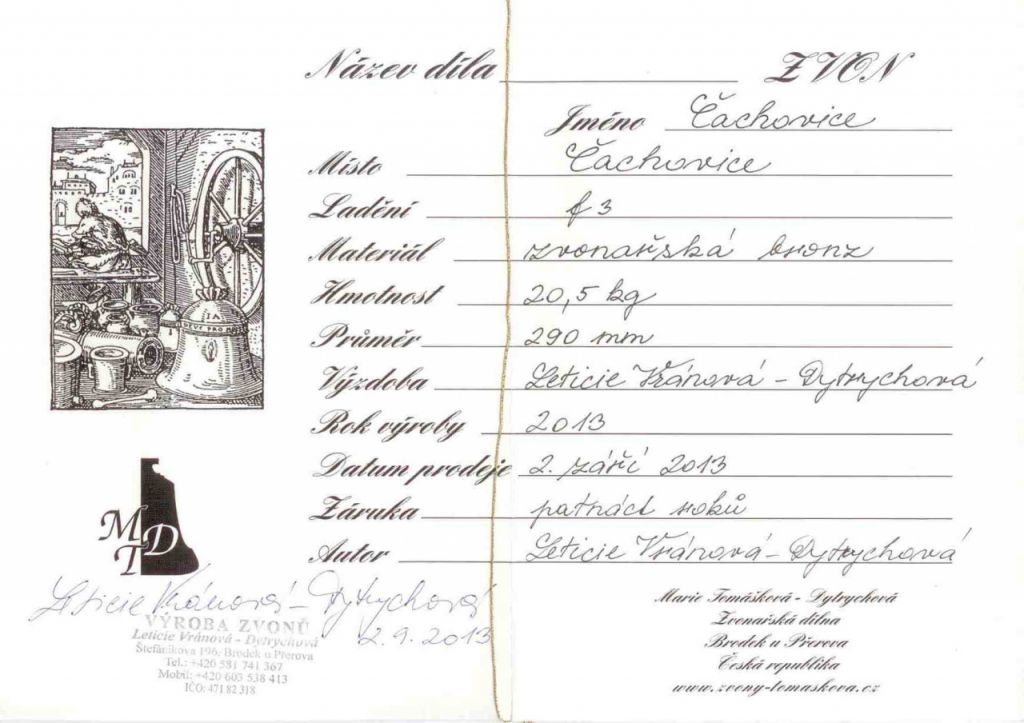 Název díla ZVON
Jméno Čachovice
Místo Čachovice
Ladění f 3
Materiál zvonařská bronz
Hmotnost 20,5 kg
Průměr 290 mm
Výzdoba Leticie Vránová - Dytrychová
Rok výroby 2013
Datum prodeje 2. září 2013
Záruka patnáct roků
Autor Leticie Vránová - Dytrychová
MTD
Leticie Vránová - Dytrychová
2.9.2013
VÝROBA ZVONŮ
Leticie Vránová - Dytrychová
Štefánikova 196, Brodek u Přerova
Tel.: +420 581 741 367
Mobil: +420 603 538 413
IČO: 471 82 318
Marie Tomášková - Dytrychová
Zvonařská dílna
Brodek u Přerova
Česká republika
www.zvony-tomaskova.cz